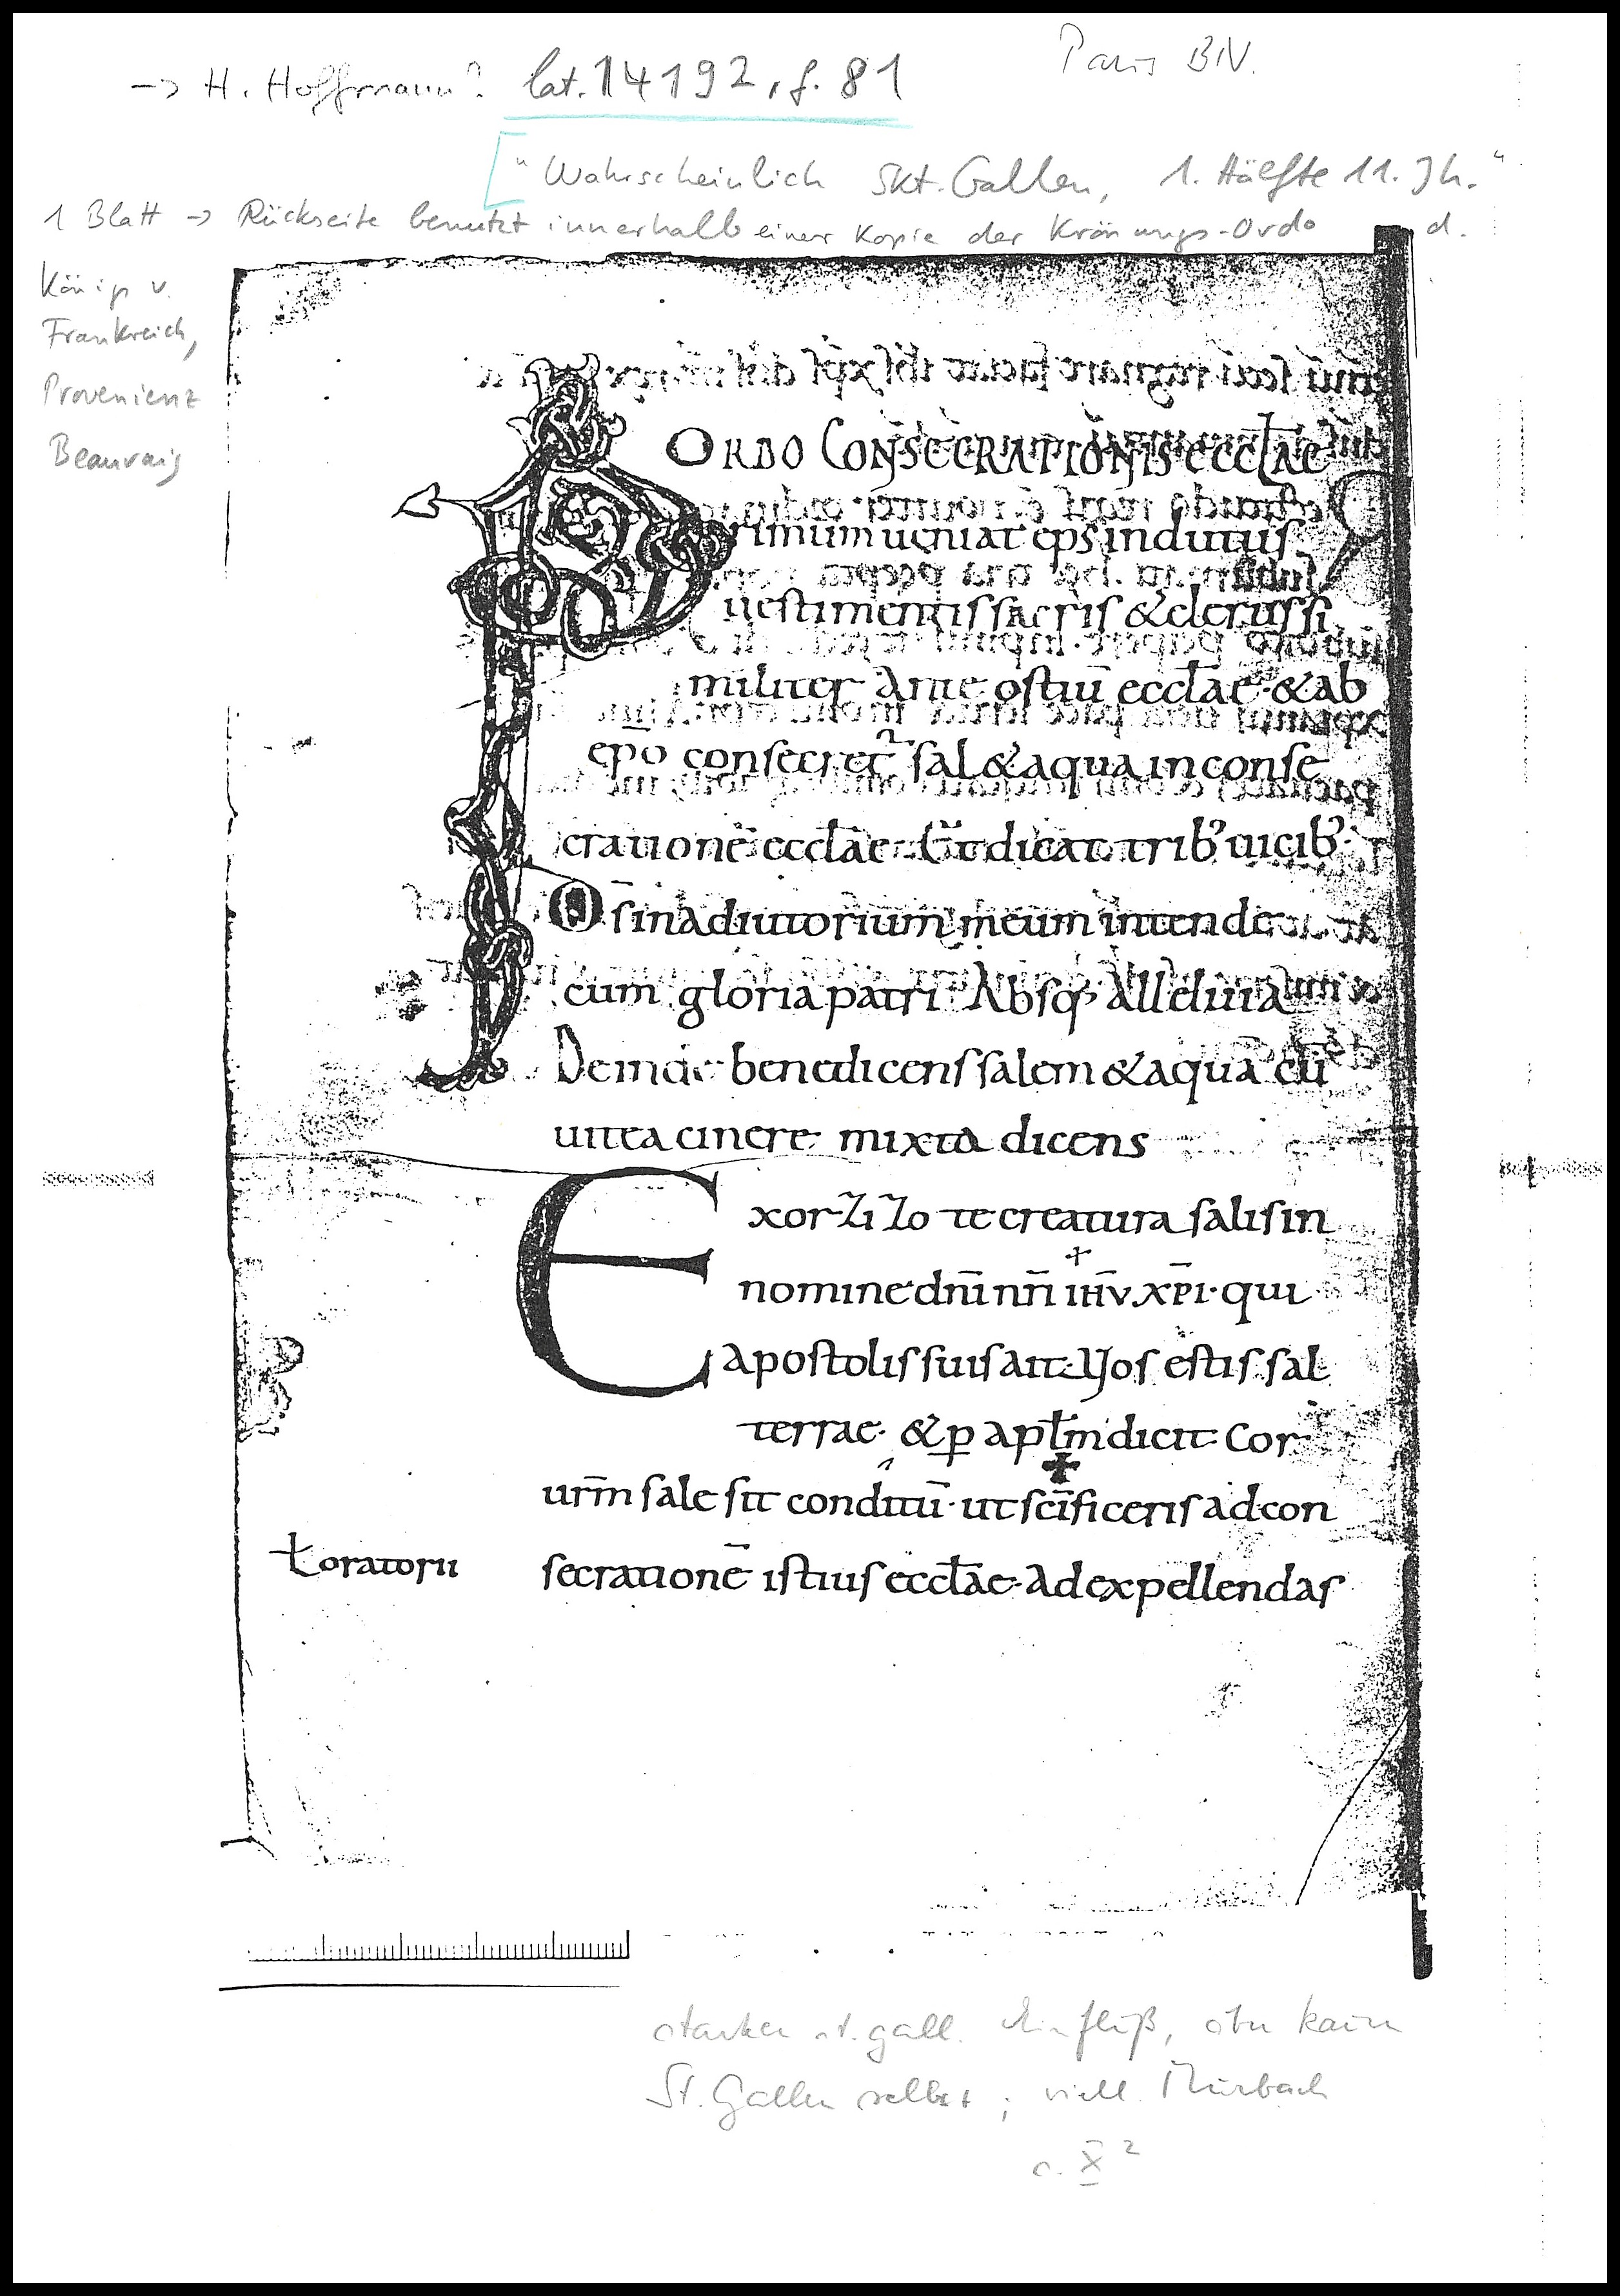 Paris BN.
→ H. Hoffmann? lat. 14192, f. 81
["Wahrscheinlich Skt. Gallen, 1. Hälfte 11. Jh."
1 Blatt → Rückseite benutzt innerhalb einer Kopie der Krönungs-Ordo d.
König v.
Frankreich,
Provenienz
Beauvais
ORDO CONSECRATIONIS ECCLAE
Primum ueniat ep̄s indutus
uestimentis sacris & clerus si
militer Ante ostiū eccl̄ae · & ab
ep̄o consecret᷑ sal & aqua in conse
cratione eccl̄ae. Et dicat trib᾽ uicib᾽·
D̄s in adiutorium meum intende
cum gloria patri Absq; alleluia
Deinde benedicens salem & aquā cū
uitea cinere mixta dicens
Exorzizo te creatura salis in
nomine dn̄i nr̄i ih̄v xp̄i · qui
apostolis suis ait · Vos estis sal
terrae · & ꝑ apl̄m dicit Cor
ur̄m sale sit conditū · ut sc̄ificeris ad con
ł oratorii
secrationē istius eccl̄ae · Ad expellendas
starker st. gall. Einfluß, aber kaum
St. Gallen selbst; viell. Murbach
s. X²